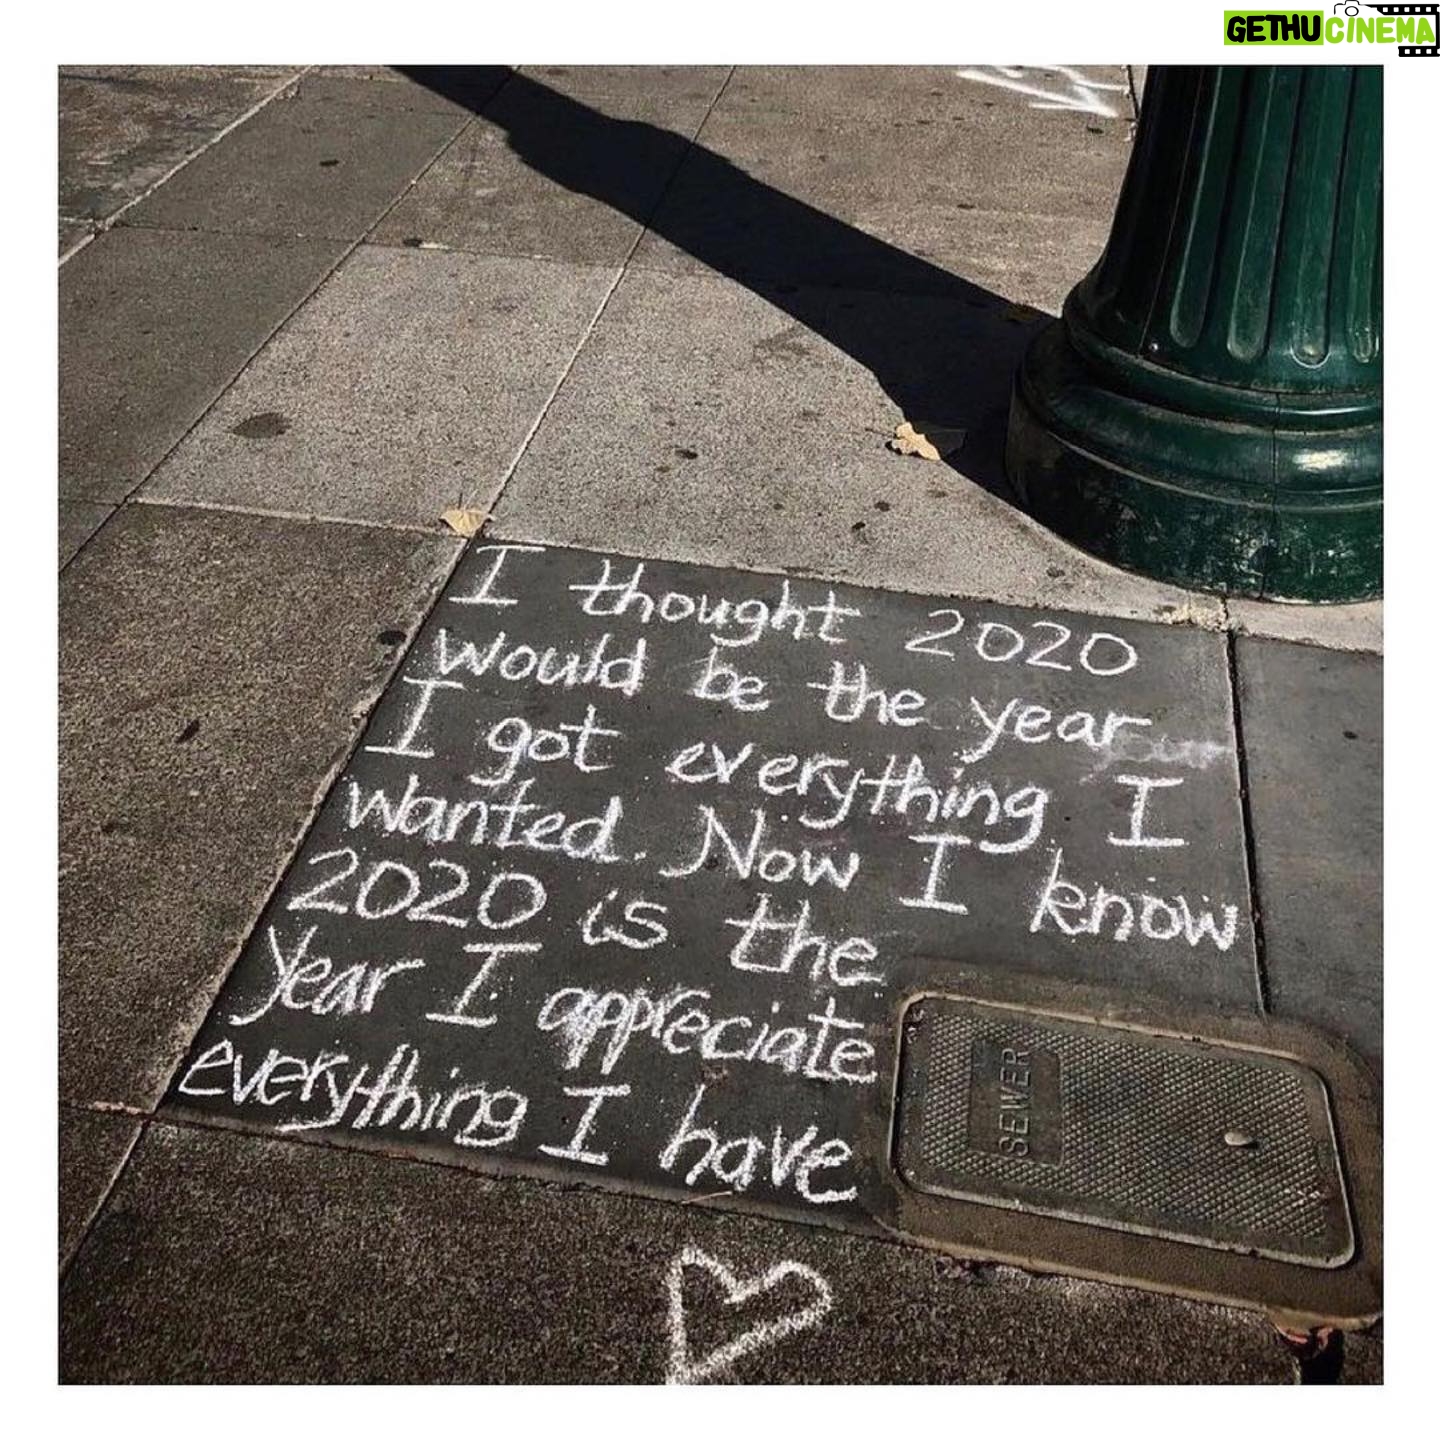 GETHUCINEMA
I thought 2020
would be the year
I got everything I
wanted. Now I know
2020 is the
Year I appreciate
everything I have
SEWER